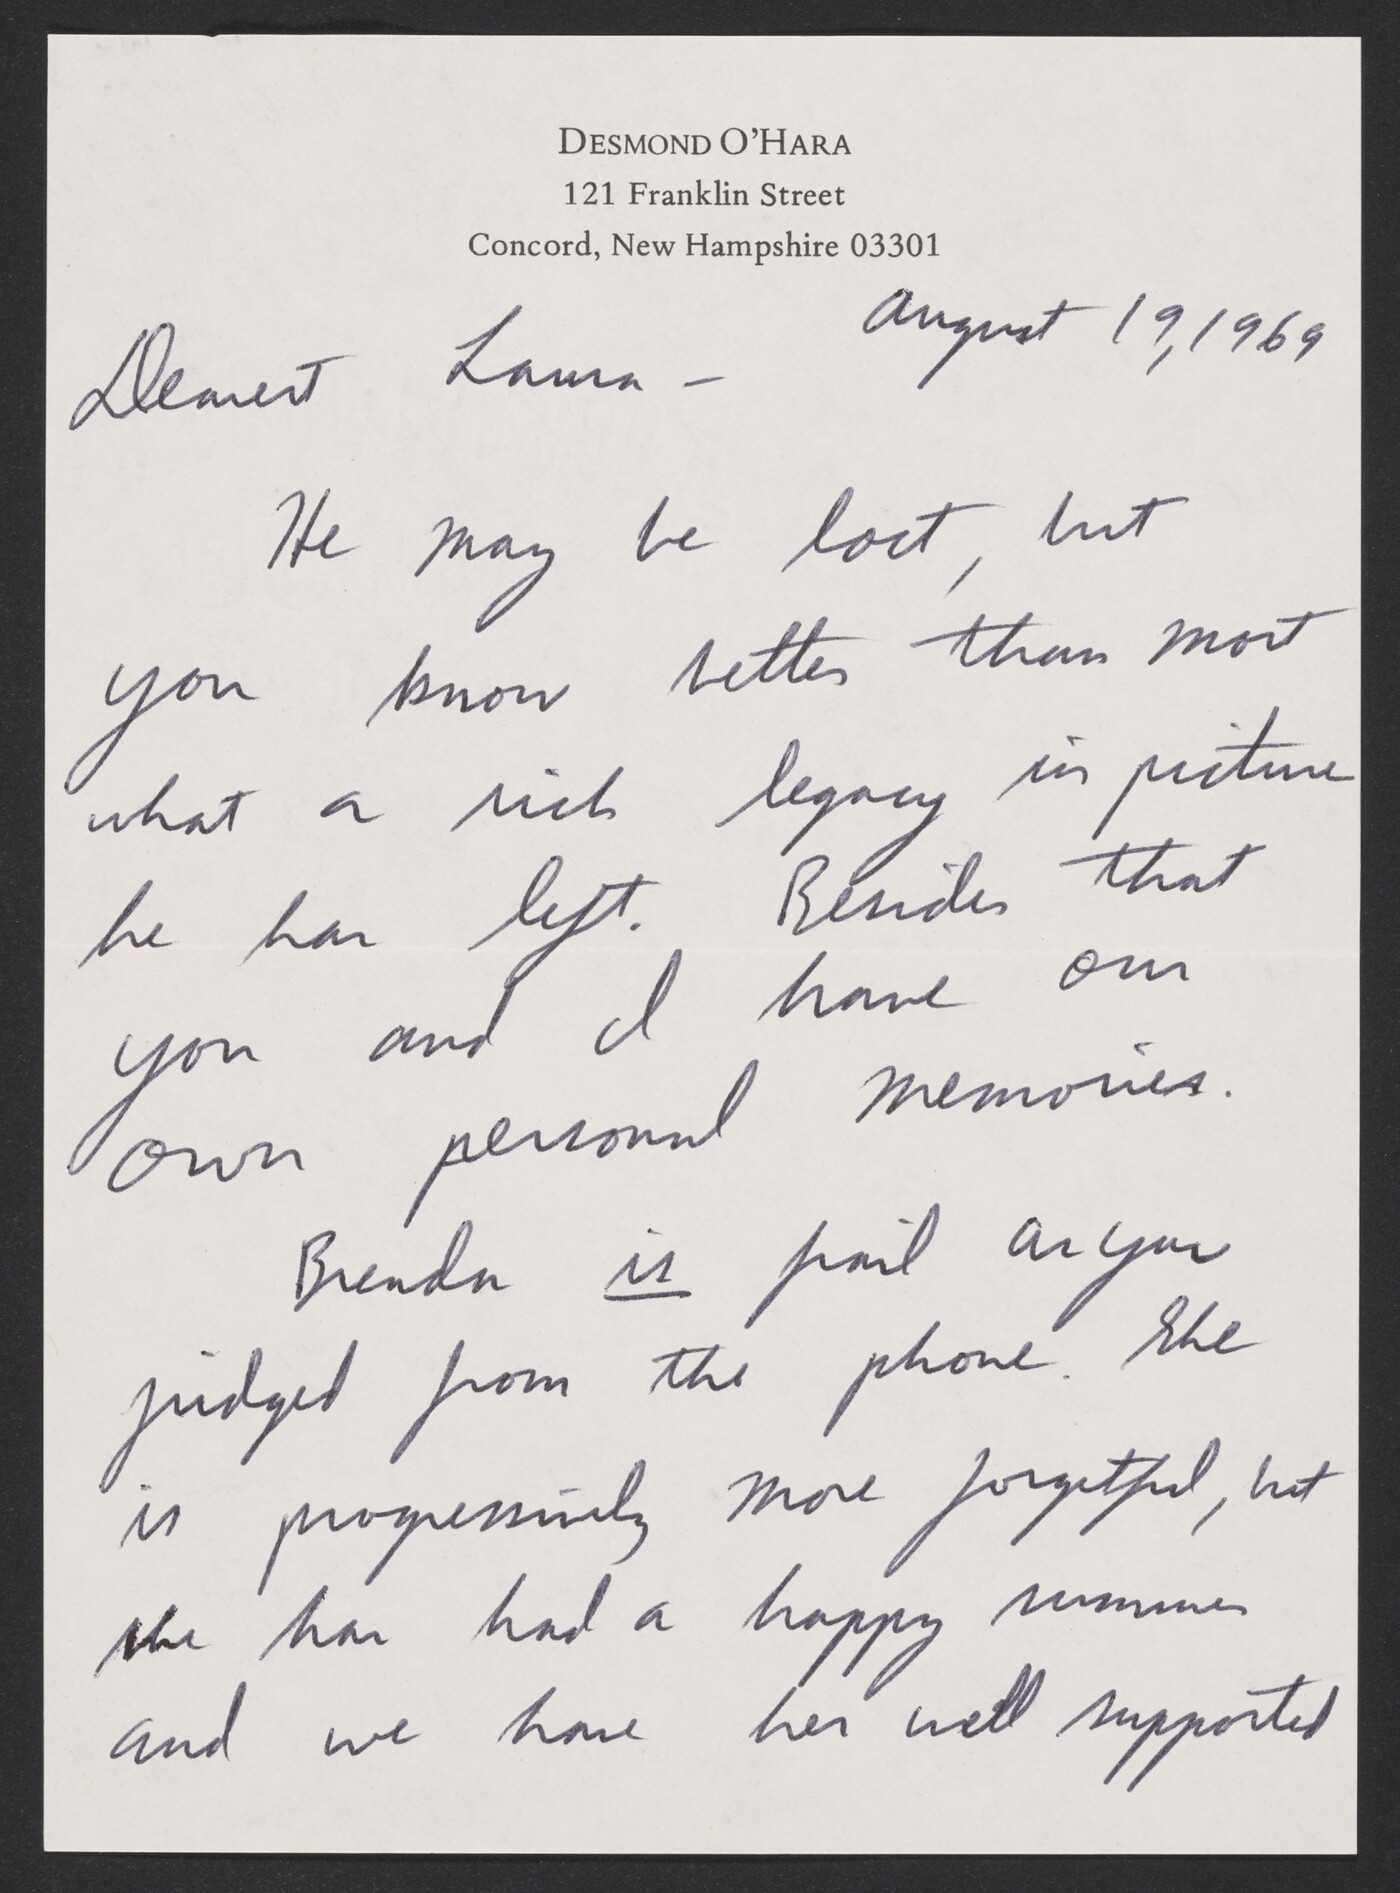 DESMOND O'HARA
121 Franklin Street
Concord, New Hampshire 03301
August 19, 1969
Dearest Laura –
He may be lost, but
you know better than most
what a rich legacy in picture
he has left. Besides that
you and I have our
own personal memories.
Brenda is frail as you
judged from the phone. She
is progressively more forgetful, but
she has had a happy summer
and we have her well supported